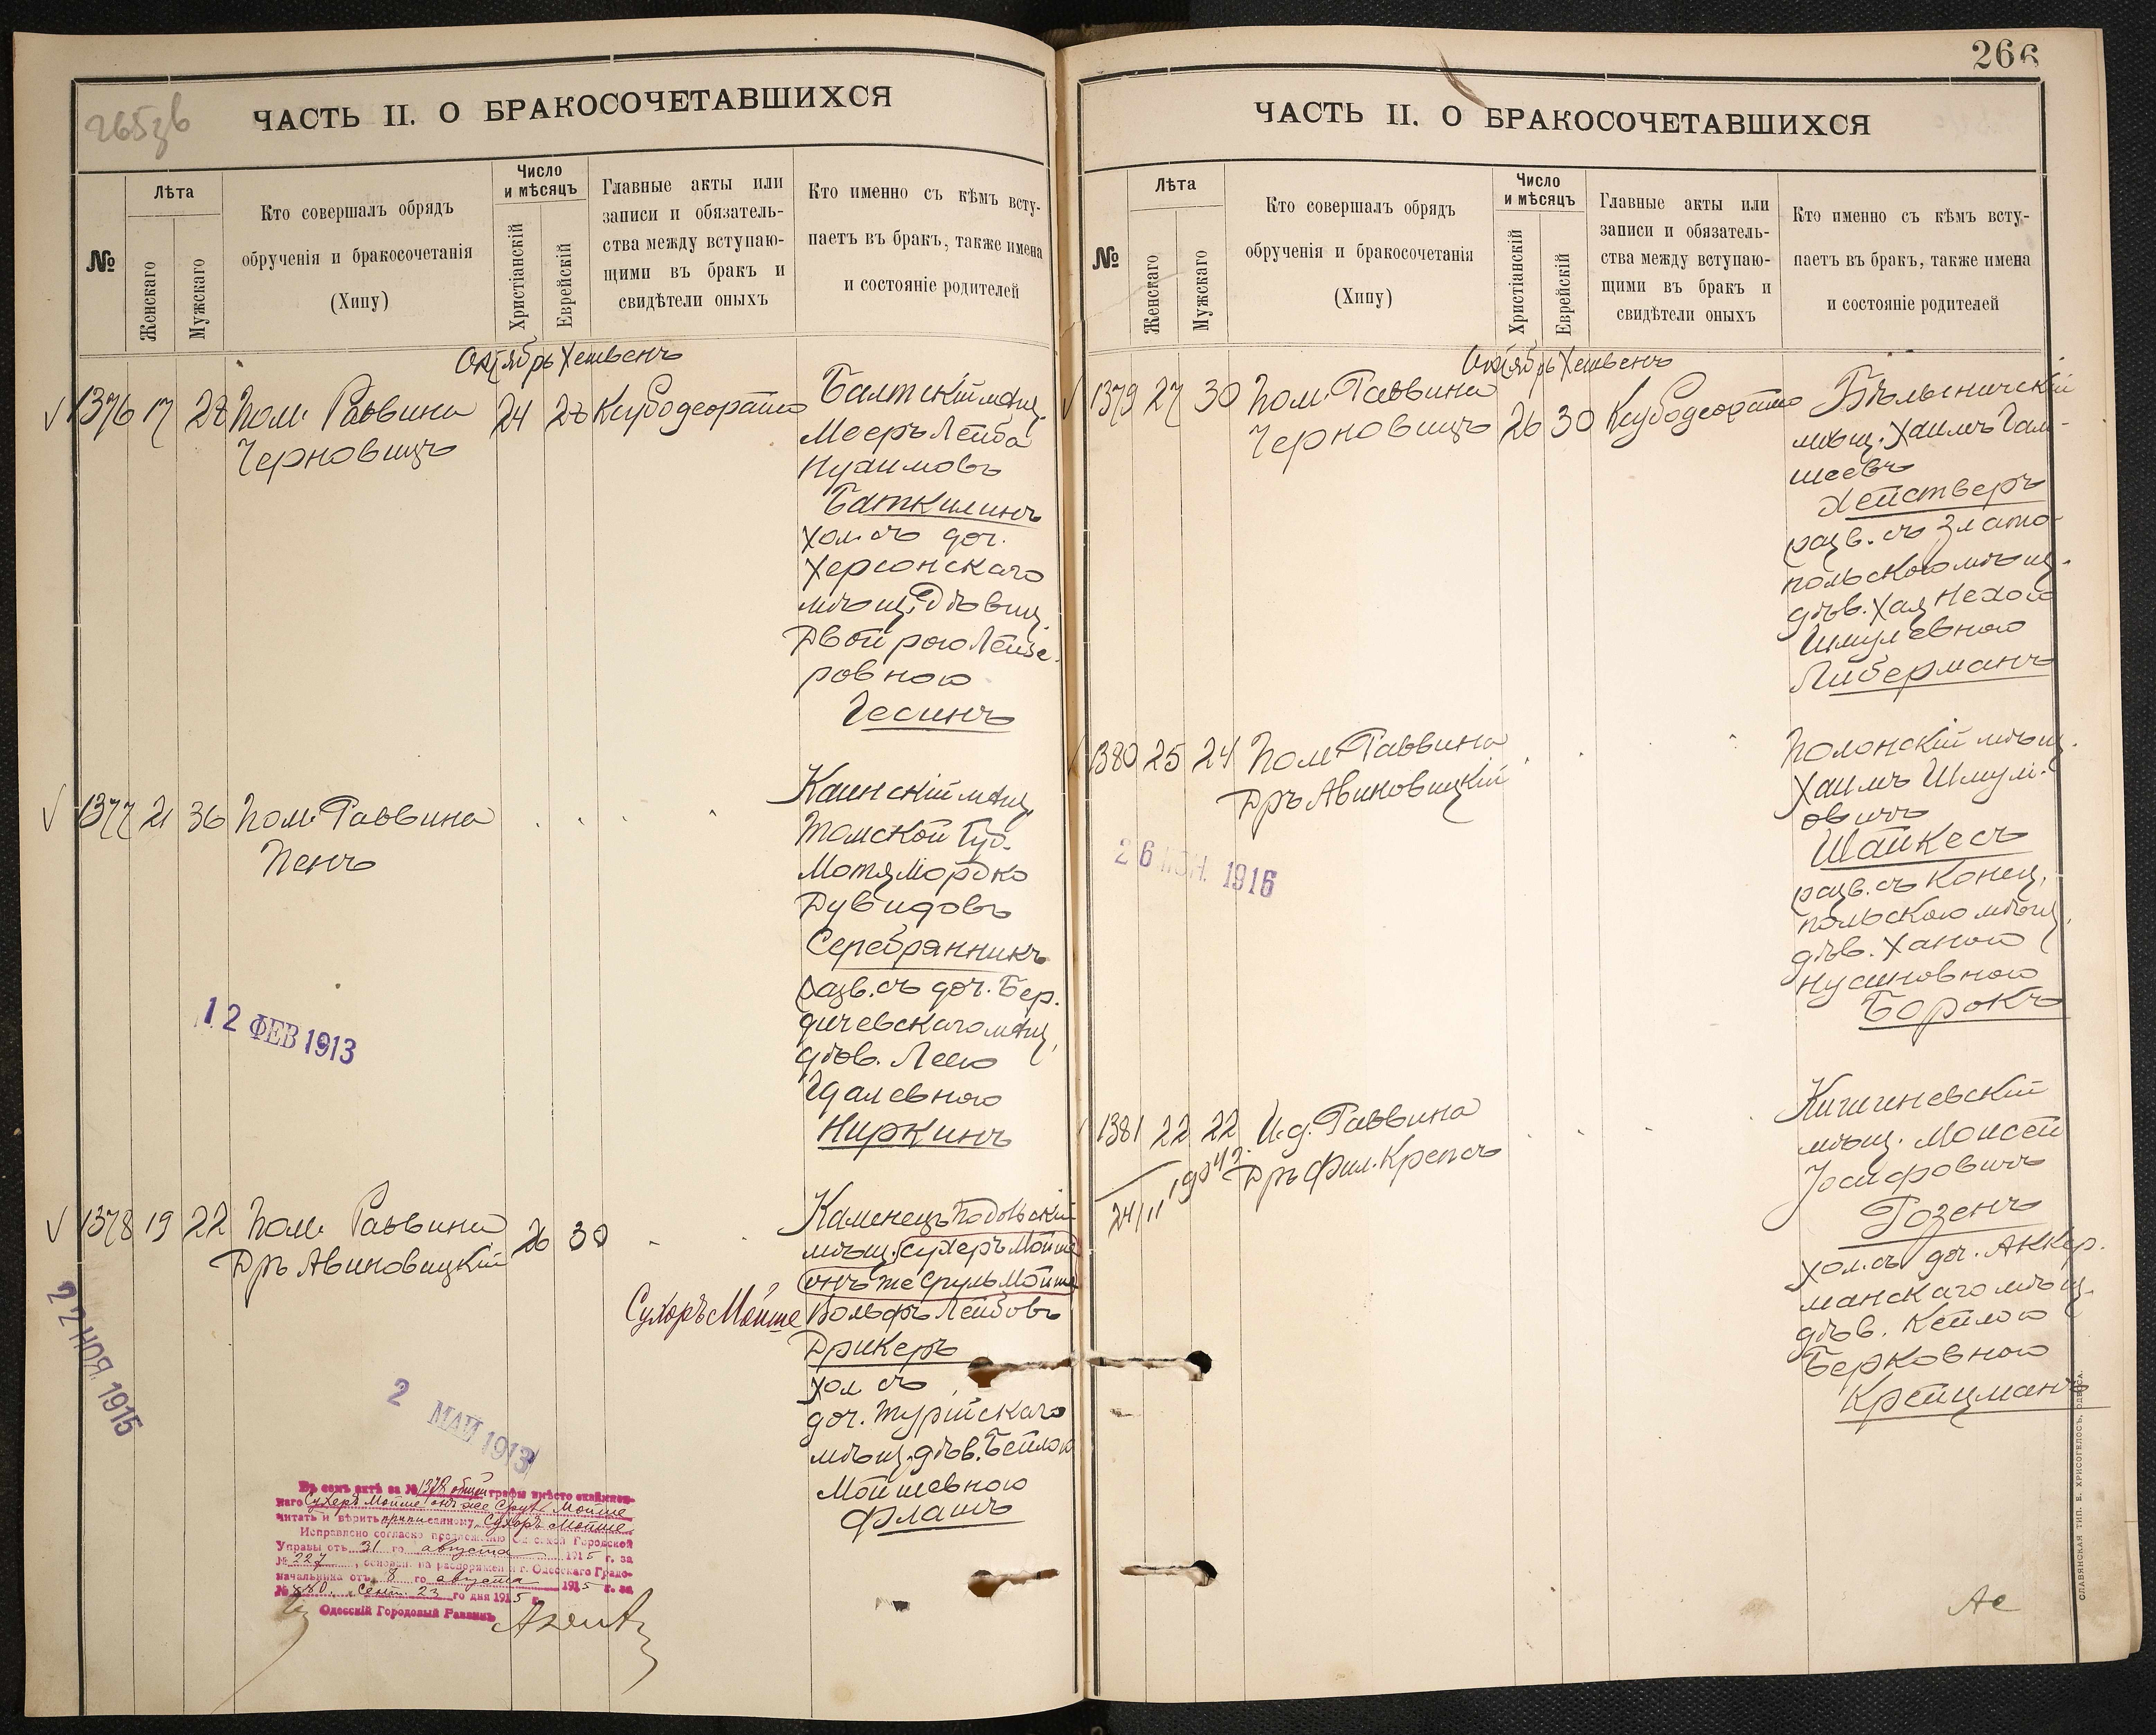 265зв
ЧАСТЬ II. О БРАКОСОЧЕТАВШИХСЯ
№
Лѣта
Женскаго
Мужскаго
Кто совершалъ обрядъ
обрученія и бракосочетанія
(Хипу)
Число
и мѣсяцъ
Христіанскій
Еврейскій
Главные акты или
записи и обязатель-
ства между вступаю-
щими въ бракъ и
свидѣтели оныхъ
Кто именно съ кѣмъ всту-
паетъ въ бракъ, также имена
и состояніе родителей
Октябрь Хешвенъ
1376 17 28 Пом. Раввина
Черновицъ
24 28 Кубодеората
Балтскій мѣщ.
Мееръ Лейба
Нухимовъ
Баткилинъ
хол. съ доч.
Херсонскаго
мѣщ. Дѣвиц.
Двойрою Лейзе-
ровною
Гесинъ
1377 21 36 Пом. Раввина
Пенъ
Каинскій мѣщ.
Томской Губ.
Мотя Мордко
Дувидовъ
Серебрянникъ
разв. съ доч. Бер-
дичевскаго мѣщ.
дѣв. Леею
Гдалевною
Ниркинъ
12 ФЕВ 1913
1378 19 22 Пом. Раввина
Дръ Авиновицкій
26 30
Каменецъ Подольскій
мѣщ. Сухеръ Мойше
онъ же Сруль Мойше
Сухоръ Мойше
Вольфъ Лейбовъ
Дрикеръ
хол съ
доч. Турійскаго
мѣщ. дѣв. Бейлою
Мойшевною
Флашъ
22 НОЯ. 1915
2 МАЙ 1913
Въ семъ актѣ за № 1378 общей графы вмѣсто
Сухеръ Мойше онъ же Сруль Мойше
читать и вѣрить приписанному Сухоръ Мойше
Исправлено согласно предложенію Одесской Городской
Управы отъ 31 го августа 1915 г. за
№ 227, основан. на распоряжен. г. Одесскаго Градо-
начальника отъ 8 го августа 1915 г. за
№ 880. Сент. 23 го дня 1915 г.
Одесскій Городовый Раввинъ
266
ЧАСТЬ II. О БРАКОСОЧЕТАВШИХСЯ
№
Лѣта
Женскаго
Мужскаго
Кто совершалъ обрядъ
обрученія и бракосочетанія
(Хипу)
Число
и мѣсяцъ
Христіанскій
Еврейскій
Главные акты или
записи и обязатель-
ства между вступаю-
щими въ бракъ и
свидѣтели оныхъ
Кто именно съ кѣмъ всту-
паетъ въ бракъ, также имена
и состояніе родителей
Октябрь Хешвенъ
1379 27 30 Пом. Раввина
Черновицъ
26 30 Кубодеората
Бѣлыничскій
мѣщ. Хаимъ Гам-
шеевъ
Хействеръ
разв. съ Злато-
польскою мѣщ.
дѣв. Хая Нехою
Шмулевною
Либерманъ
1380 25 24 Пом. Раввина
Дръ Авиновицкій
Полонскій мѣщ.
Хаимъ Шмул-
овичъ
Шайкесъ
разв. съ Конец-
польскою мѣщ.
дѣв. Ханою
Нусиновною
Борокъ
1916
1381 22 22 И.д. Раввина
Дръ Фил. Крепсъ
24/11
Кишиневскій
мѣщ. Моисей
Іосифовичъ
Розенъ
хол. съ доч. Аккер-
манскаго мѣщ.
дѣв. Кейлою
Берковною
Крейцманъ
СЛАВЯНСКАЯ ТИП. Е. ХРИСОГЕЛОСЪ, ОДЕССА.